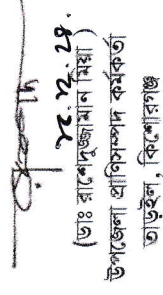 ২২.২.২৪.
(ডাঃ রাশেদুজ্জামান মিয়া)
উপজেলা প্রাণিসম্পদ কর্মকর্তা
তাড়াইল, কিশোরগঞ্জ